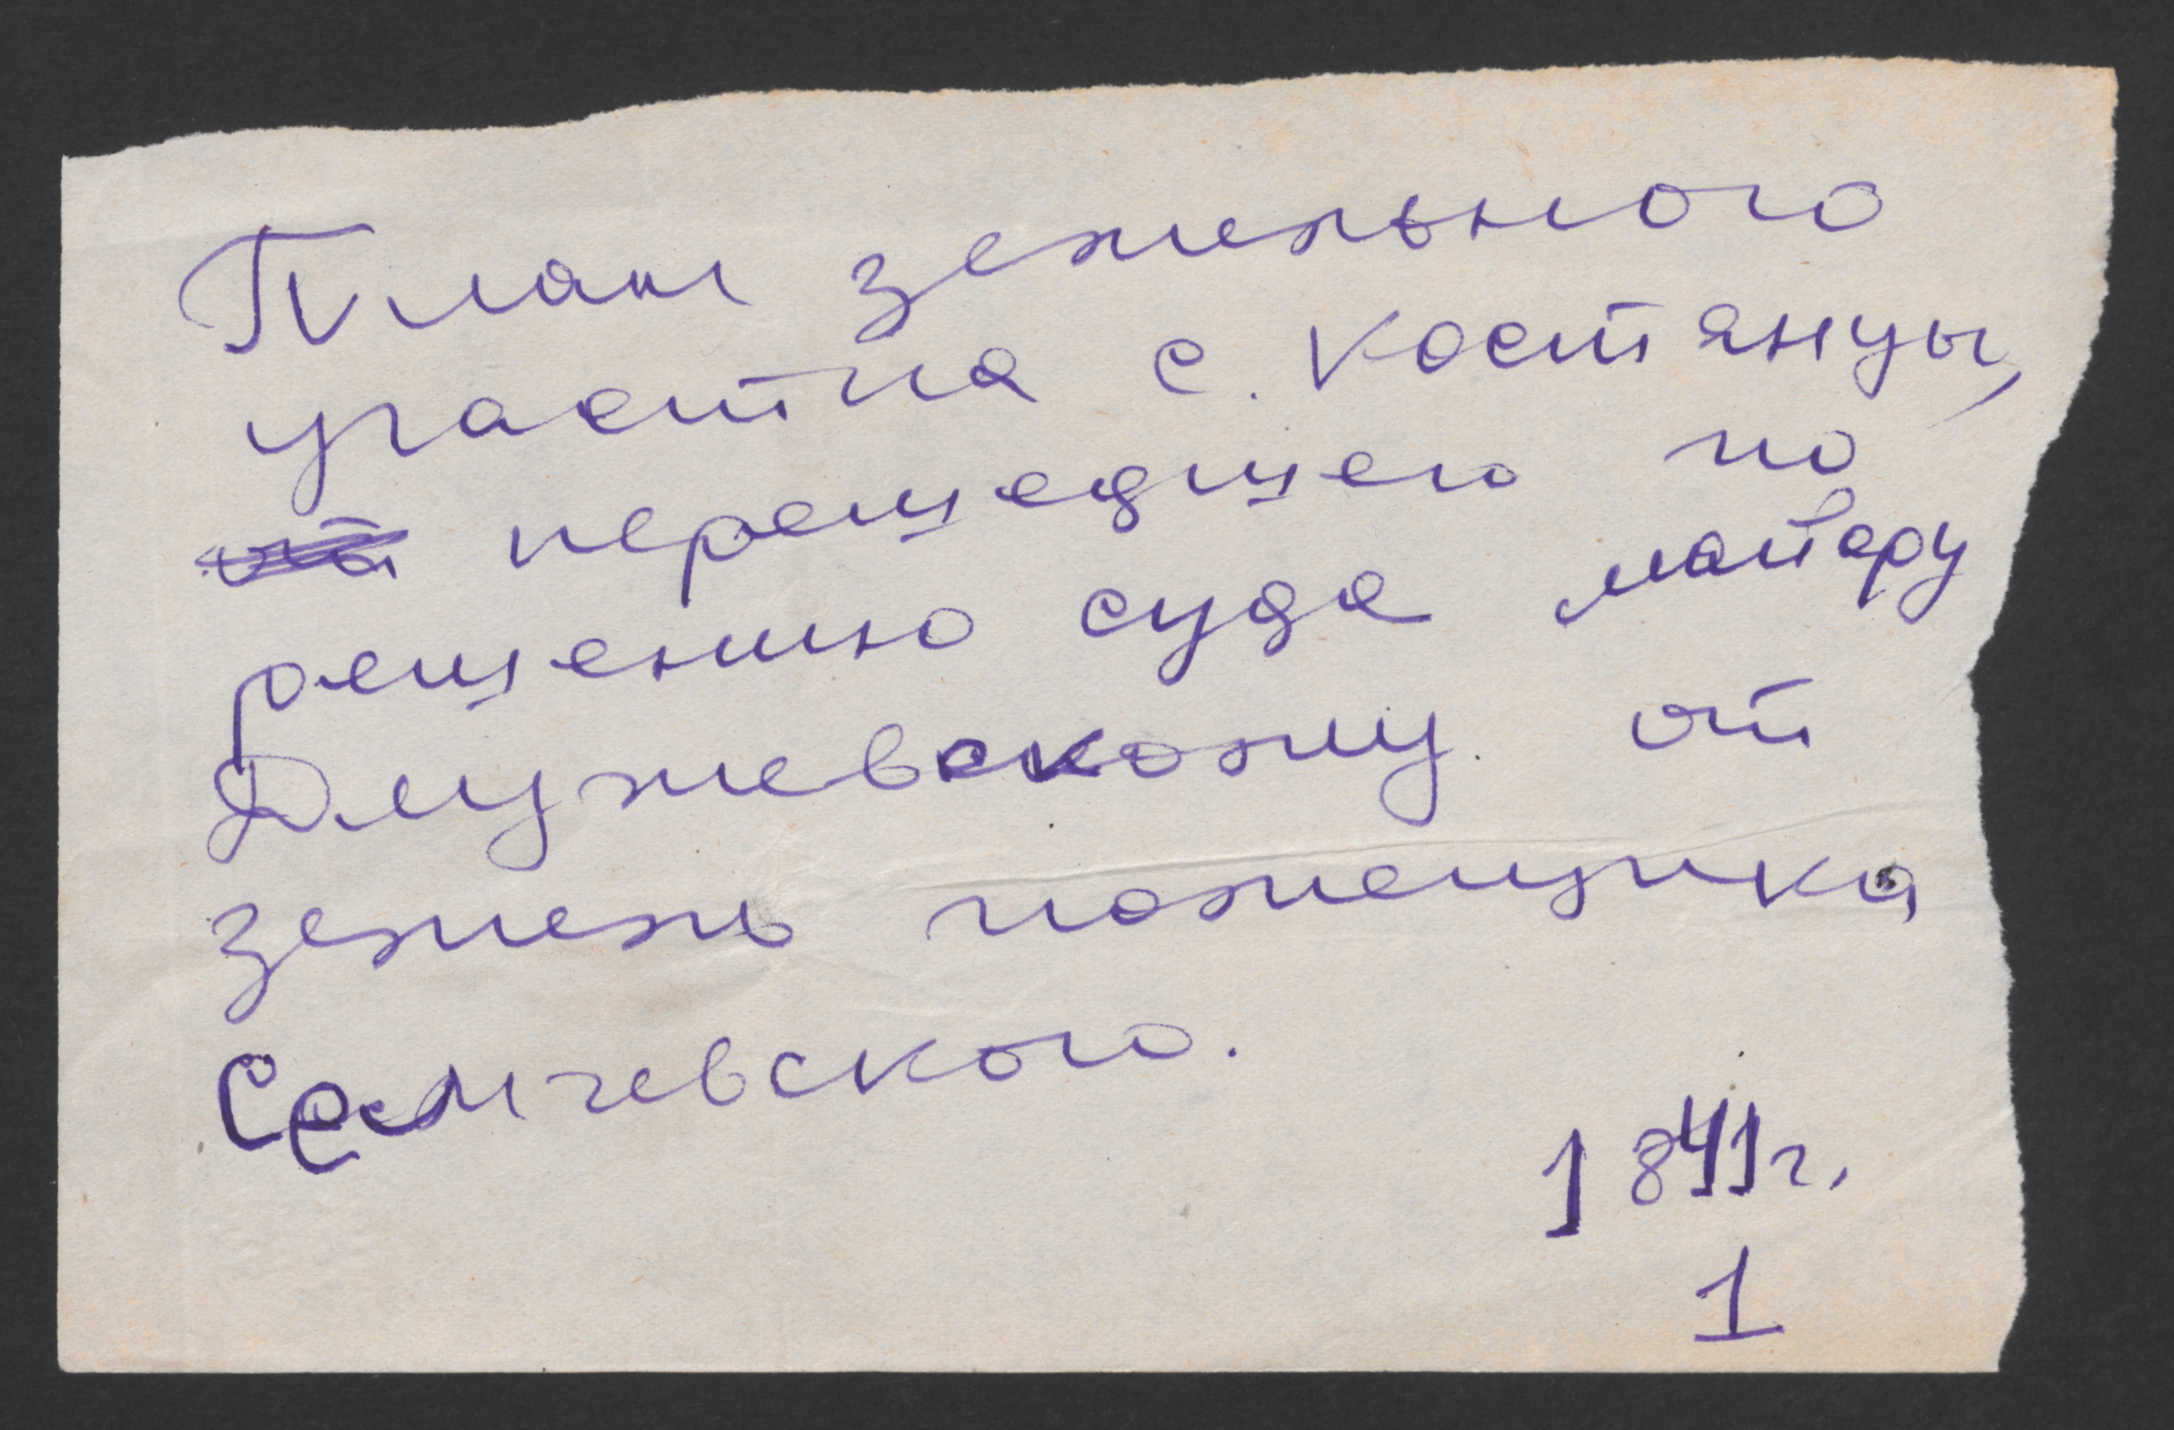 План земельного
участка с. Костянцы,
перешедшего по
решению суда майору
Длужевскому от
земель помещика
Семчевского.
1841г.
1